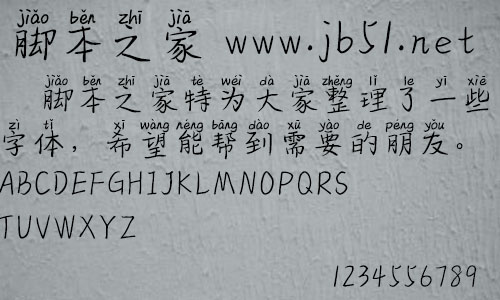 jiǎo běn zhī jiā
脚本之家 www.jb51.net
jiǎo běn zhī jiā tè wéi dà jiā zhěng lǐ le yì xiē
脚本之家特为大家整理了一些
zì tǐ xī wàng néng bāng dào xū yào de péng yǒu
字体，希望能帮到需要的朋友。
ABCDEFGHIJKLMNOPQRS
TUVWXYZ
1234556789